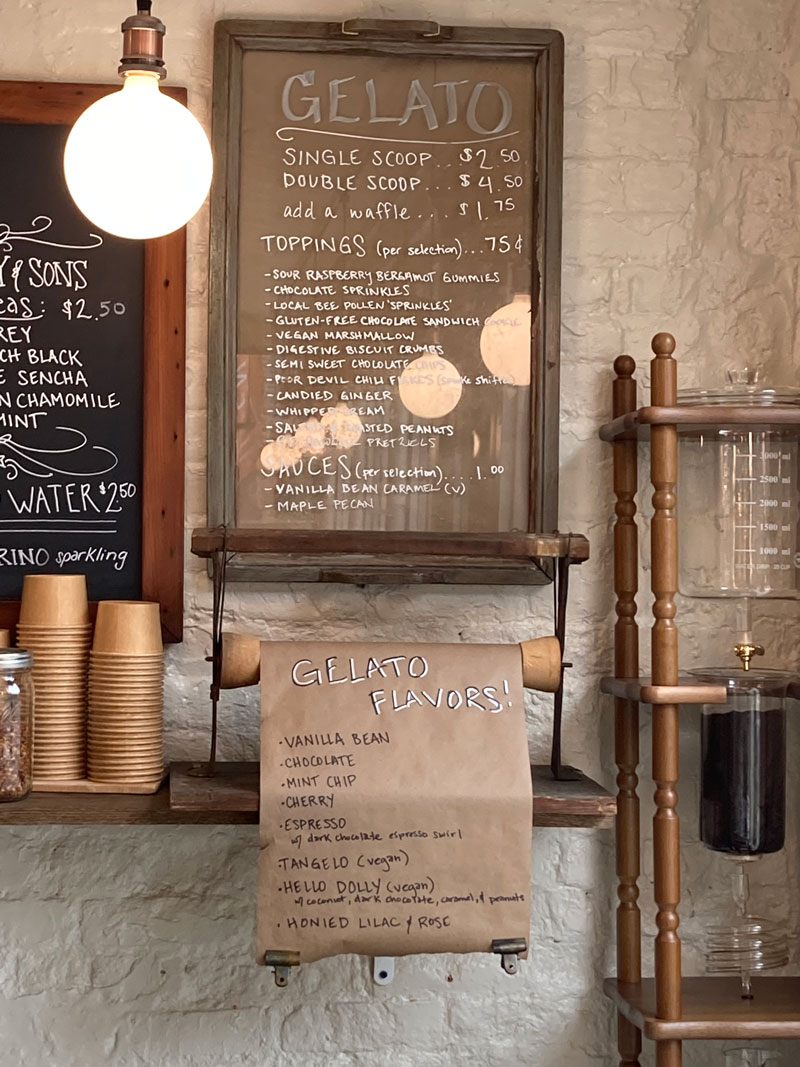 Y & SONS
eas: $2.50
REY
CH BLACK
E SENCHA
N CHAMOMILE
MINT
WATER $2.50
RINO sparkling
GELATO
SINGLE SCOOP... $2.50
DOUBLE SCOOP... $4.50
add a waffle.... $1.75
TOPPINGS (per selection)...75¢
- SOUR RASPBERRY BERGAMOT GUMMIES
- CHOCOLATE SPRINKLES
- LOCAL BEE POLLEN 'SPRINKLES'
- GLUTEN-FREE CHOCOLATE SANDWICH COOKIE
- VEGAN MARSHMALLOW
- DIGESTIVE BISCUIT CRUMBS
- SEMI SWEET CHOCOLATE CHIPS
- POOR DEVIL CHILI FLAKES (smoke shifter)
- CANDIED GINGER
- WHIPPED CREAM
- ROASTED PEANUTS
PRETZELS
SAUCES (per selection)....1.00
- VANILLA BEAN CARAMEL (v)
- MAPLE PECAN
GELATO
FLAVORS!
· VANILLA BEAN
· CHOCOLATE
· MINT CHIP
· CHERRY
· ESPRESSO
w/ dark chocolate espresso swirl
· TANGELO (vegan)
· HELLO DOLLY (vegan)
w/ coconut, dark chocolate, caramel, & peanuts
· HONIED LILAC & ROSE
3000 ml
2500 ml
2000 ml
1500 ml
1000 ml